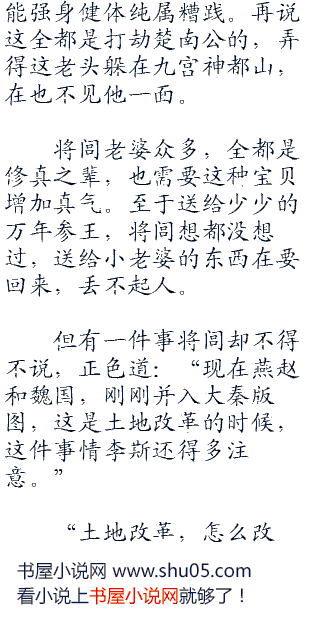 能强身健体纯属糟践。再说
这全都是打动楚南公的，弄
得这老头躲在九宫神都山，
在也不见他一面。
将闾老婆众多，全都是
修真之辈，也需要这种宝贝
增加真气。至于送给少少的
万年参王，将闾想都没想
过，送给小老婆的东西在要
回来，丢不起人。
但有一件事将闾却不得
不说，正色道：“现在燕赵
和魏国，刚刚并入大秦版
图，这是土地改革的时候，
这件事情李斯还得多注
意。”
“土地改革，怎么改
书屋小说网 www.shu05.com
看小说上书屋小说网就够了！